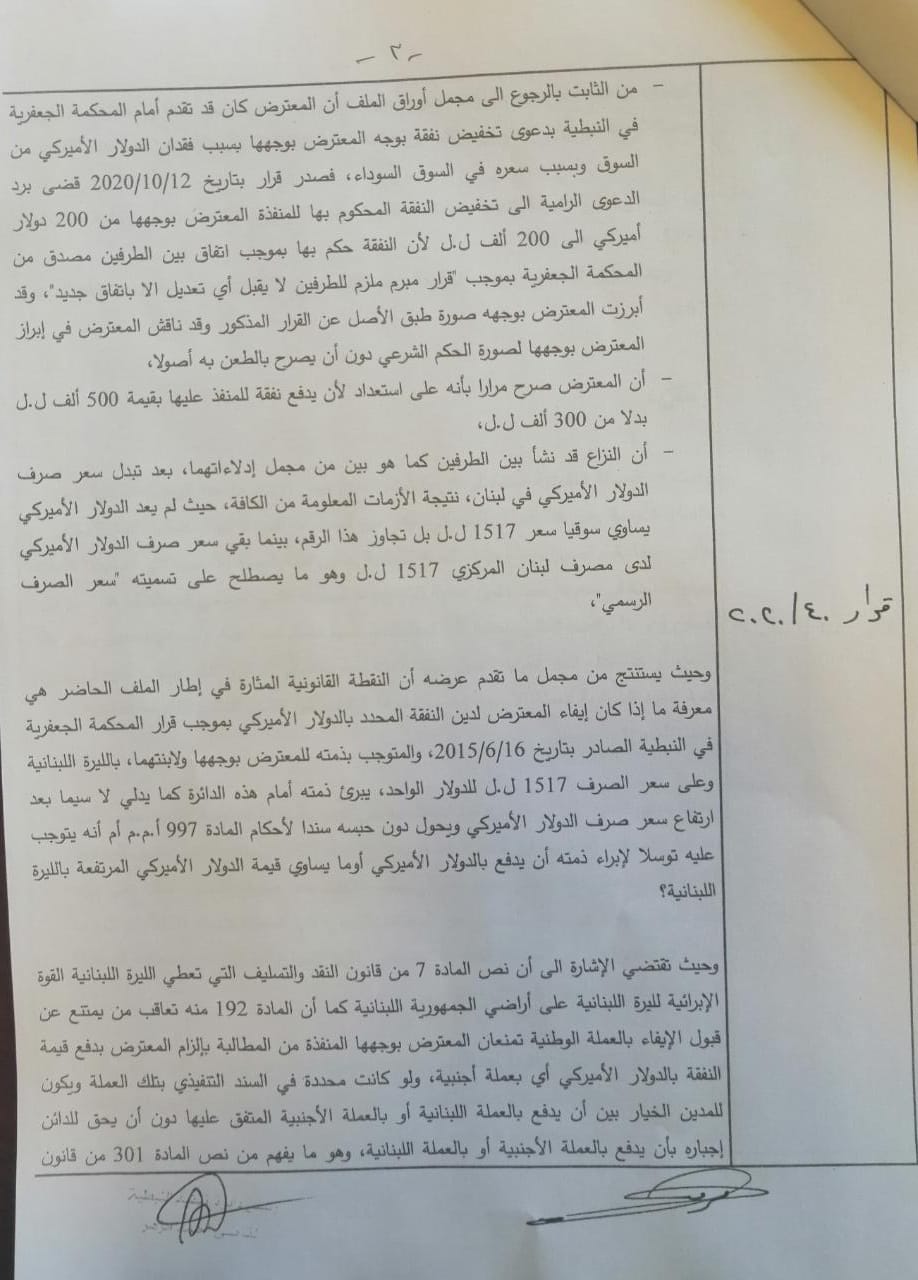 - ٢ -
- من الثابت بالرجوع الى مجمل أوراق الملف أن المعترض كان قد تقدم أمام المحكمة الجعفرية
في النبطية بدعوى تخفيض نفقة بوجه المعترض بوجهها بسبب فقدان الدولار الأميركي من
السوق وبسبب سعره في السوق السوداء، فصدر قرار بتاريخ 2020/10/12 قضى برد
الدعوى الرامية الى تخفيض النفقة المحكوم بها للمنفذة المعترض بوجهها من 200 دولار
أميركي الى 200 ألف ل.ل لأن النفقة حكم بها بموجب اتفاق بين الطرفين مصدق من
المحكمة الجعفرية بموجب "قرار مبرم ملزم للطرفين لا يقبل أي تعديل الا باتفاق جديد"، وقد
أبرزت المعترض بوجهه صورة طبق الأصل عن القرار المذكور وقد ناقش المعترض في إبراز
المعترض بوجهها لصورة الحكم الشرعي دون أن يصرح بالطعن به أصولا،
- أن المعترض صرح مرارا بأنه على استعداد لأن يدفع نفقة للمنفذ عليها بقيمة 500 ألف ل.ل
بدلا من 300 ألف ل.ل،
- أن النزاع قد نشأ بين الطرفين كما هو بين من مجمل إدلاءاتهما، بعد تبدل سعر صرف
الدولار الأميركي في لبنان، نتيجة الأزمات المعلومة من الكافة، حيث لم يعد الدولار الأميركي
يساوي سوقيا سعر 1517 ل.ل بل تجاوز هذا الرقم، بينما بقي سعر صرف الدولار الأميركي
لدى مصرف لبنان المركزي 1517 ل.ل وهو ما يصطلح على تسميته "سعر الصرف
الرسمي"،
قرار ٤٠/٢٠٢٠
وحيث يستنتج من مجمل ما تقدم عرضه أن النقطة القانونية المثارة في إطار الملف الحاضر هي
معرفة ما إذا كان إيفاء المعترض لدين النفقة المحدد بالدولار الأميركي بموجب قرار المحكمة الجعفرية
في النبطية الصادر بتاريخ 2015/6/16، والمتوجب بذمته للمعترض بوجهها ولابنتهما، بالليرة اللبنانية
وعلى سعر الصرف 1517 ل.ل للدولار الواحد، يبرئ ذمته أمام هذه الدائرة كما يدلي لا سيما بعد
ارتفاع سعر صرف الدولار الأميركي ويحول دون حبسه سندا لأحكام المادة 997 أ.م.م أم أنه يتوجب
عليه توسلا لإبراء ذمته أن يدفع بالدولار الأميركي أوما يساوي قيمة الدولار الأميركي المرتفعة بالليرة
اللبنانية؟
وحيث تقتضي الإشارة الى أن نص المادة 7 من قانون النقد والتسليف التي تعطي الليرة اللبنانية القوة
الإبرائية لليرة اللبنانية على أراضي الجمهورية اللبنانية كما أن المادة 192 منه تعاقب من يمتنع عن
قبول الإيفاء بالعملة الوطنية تمنعان المعترض بوجهها المنفذة من المطالبة بإلزام المعترض بدفع قيمة
النفقة بالدولار الأميركي أي بعملة أجنبية، ولو كانت محددة في السند التنفيذي بتلك العملة ويكون
للمدين الخيار بين أن يدفع بالعملة اللبنانية أو بالعملة الأجنبية المتفق عليها دون أن يحق للدائن
إجباره بأن يدفع بالعملة الأجنبية أو بالعملة اللبنانية، وهو ما يفهم من نص المادة 301 من قانون
النبطية